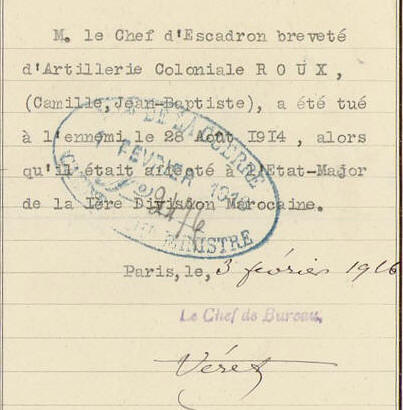 M. le Chef d'Escadron breveté
d'Artillerie Coloniale ROUX,
(Camille,Jean-Baptiste), a été tué
à l'ennemi le 28 Août 1914, alors
qu'il était affecté à l'Etat-Major
de la Ière Division Marocaine.
DE LA GUERRE
FEVRIER 191
MINISTRE
Paris,le, 3 février 1916
Le Chef de Bureau,
Véret